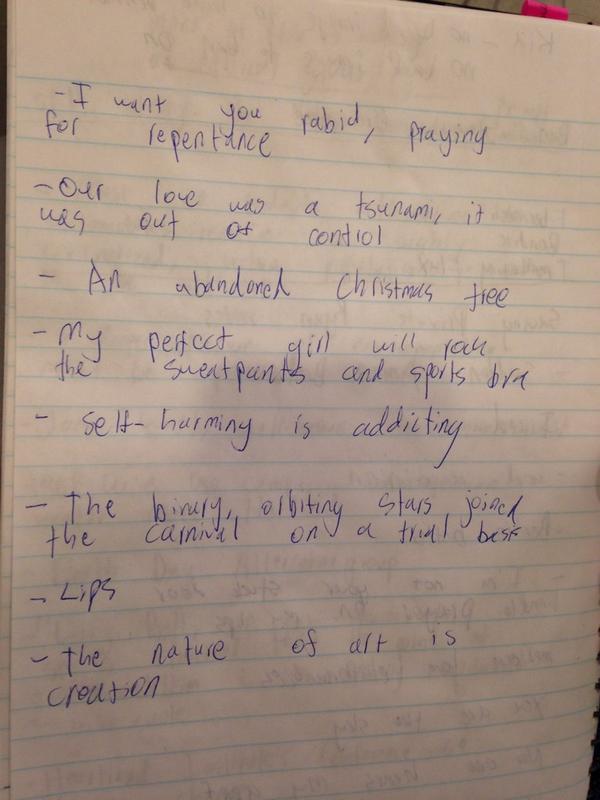 - I want you rabid, praying
for repentance
- Our love was a tsunami, it
was out of control
- An abandoned Christmas tree
- My perfect girl will rock
the sweatpants and sports bra
- self-harming is addicting
- The binary, orbiting stars joined
the carnival on a trial basis
- Lips
- The nature of art is
creation